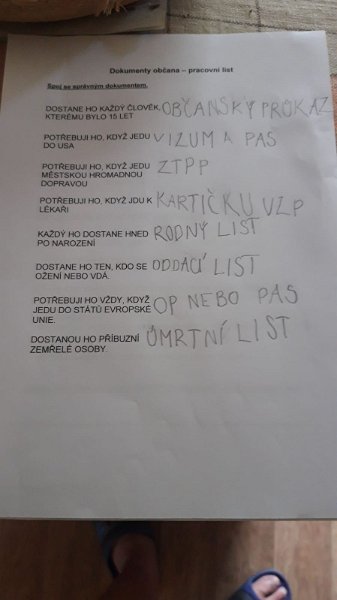 Dokumenty občana – pracovní list
Spoj se správným dokumentem.
DOSTANE HO KAŽDÝ ČLOVĚK, OBČANSKÝ PRŮKAZ
KTERÉMU BYLO 15 LET
POTŘEBUJI HO, KDYŽ JEDU VIZUM A PAS
DO USA
POTŘEBUJI HO, KDYŽ JEDU ZTPP
MĚSTSKOU HROMADNOU
DOPRAVOU
POTŘEBUJI HO, KDYŽ JDU K KARTIČKU VZP
LÉKAŘI
KAŽDÝ HO DOSTANE HNED RODNÝ LIST
PO NAROZENÍ
DOSTANE HO TEN, KDO SE ODDACÍ LIST
OŽENÍ NEBO VDÁ.
POTŘEBUJI HO VŽDY, KDYŽ OP NEBO PAS
JEDU DO STÁTŮ EVROPSKÉ
UNIE.
DOSTANOU HO PŘÍBUZNÍ ÚMRTNÍ LIST
ZEMŘELÉ OSOBY.